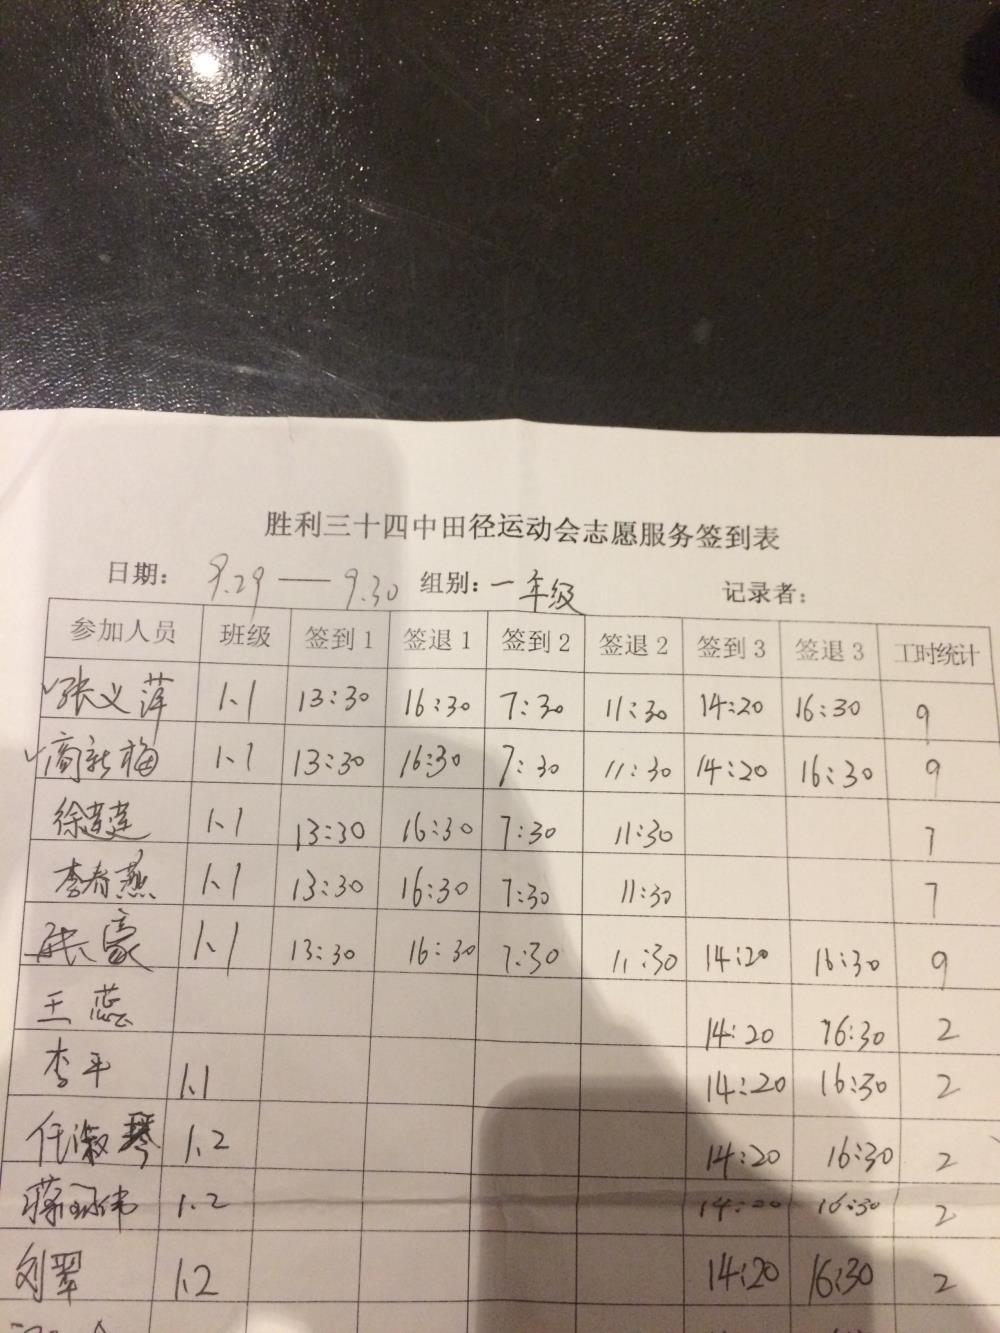 胜利三十四中田径运动会志愿服务签到表
日期: 9.29 — 9.30 组别: 一年级 记录者:
参加人员 班级 签到1 签退1 签到2 签退2 签到3 签退3 工时统计
√张义萍 1.1 13:30 16:30 7:30 11:30 14:20 16:30 9
√高新梅 1.1 13:30 16:30 7:30 11:30 14:20 16:30 9
徐莲莲 1.1 13:30 16:30 7:30 11:30 7
李春燕 1.1 13:30 16:30 7:30 11:30 7
张豪 1.1 13:30 16:30 7:30 11:30 14:20 16:30 9
王蕊 14:20 16:30 2
李平 1.1 14:20 16:30 2
任淑琴 1.2 14:20 16:30 2
蒋 伟 1.2 14:20 16:30 2
刘翠 1.2 14:20 16:30 2